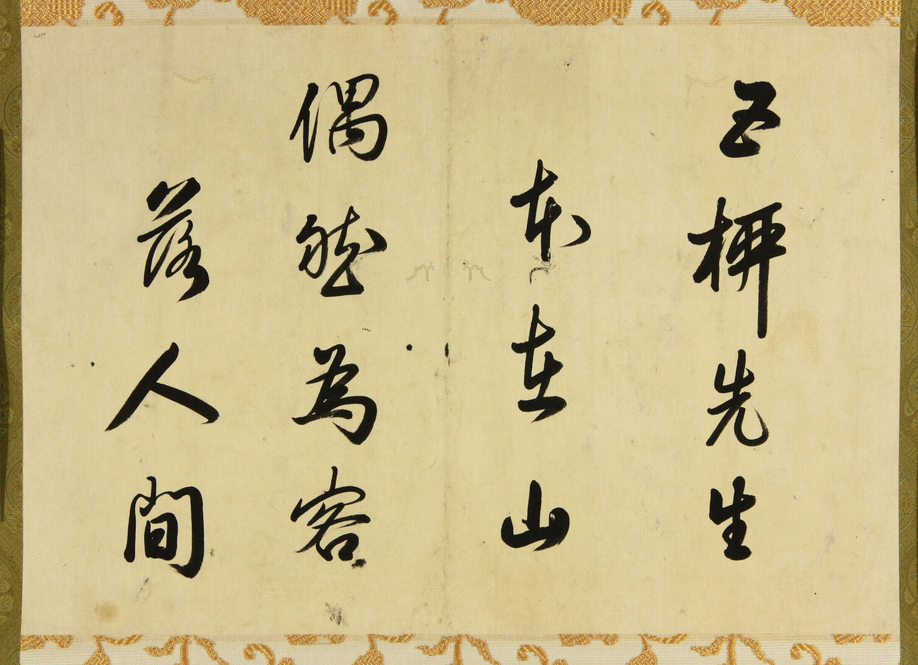 五柳先生
本在山
偶然為客
落人間